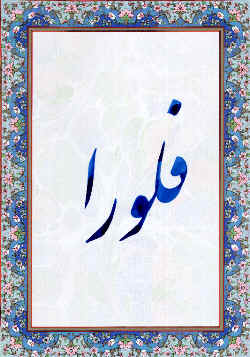 فلورا